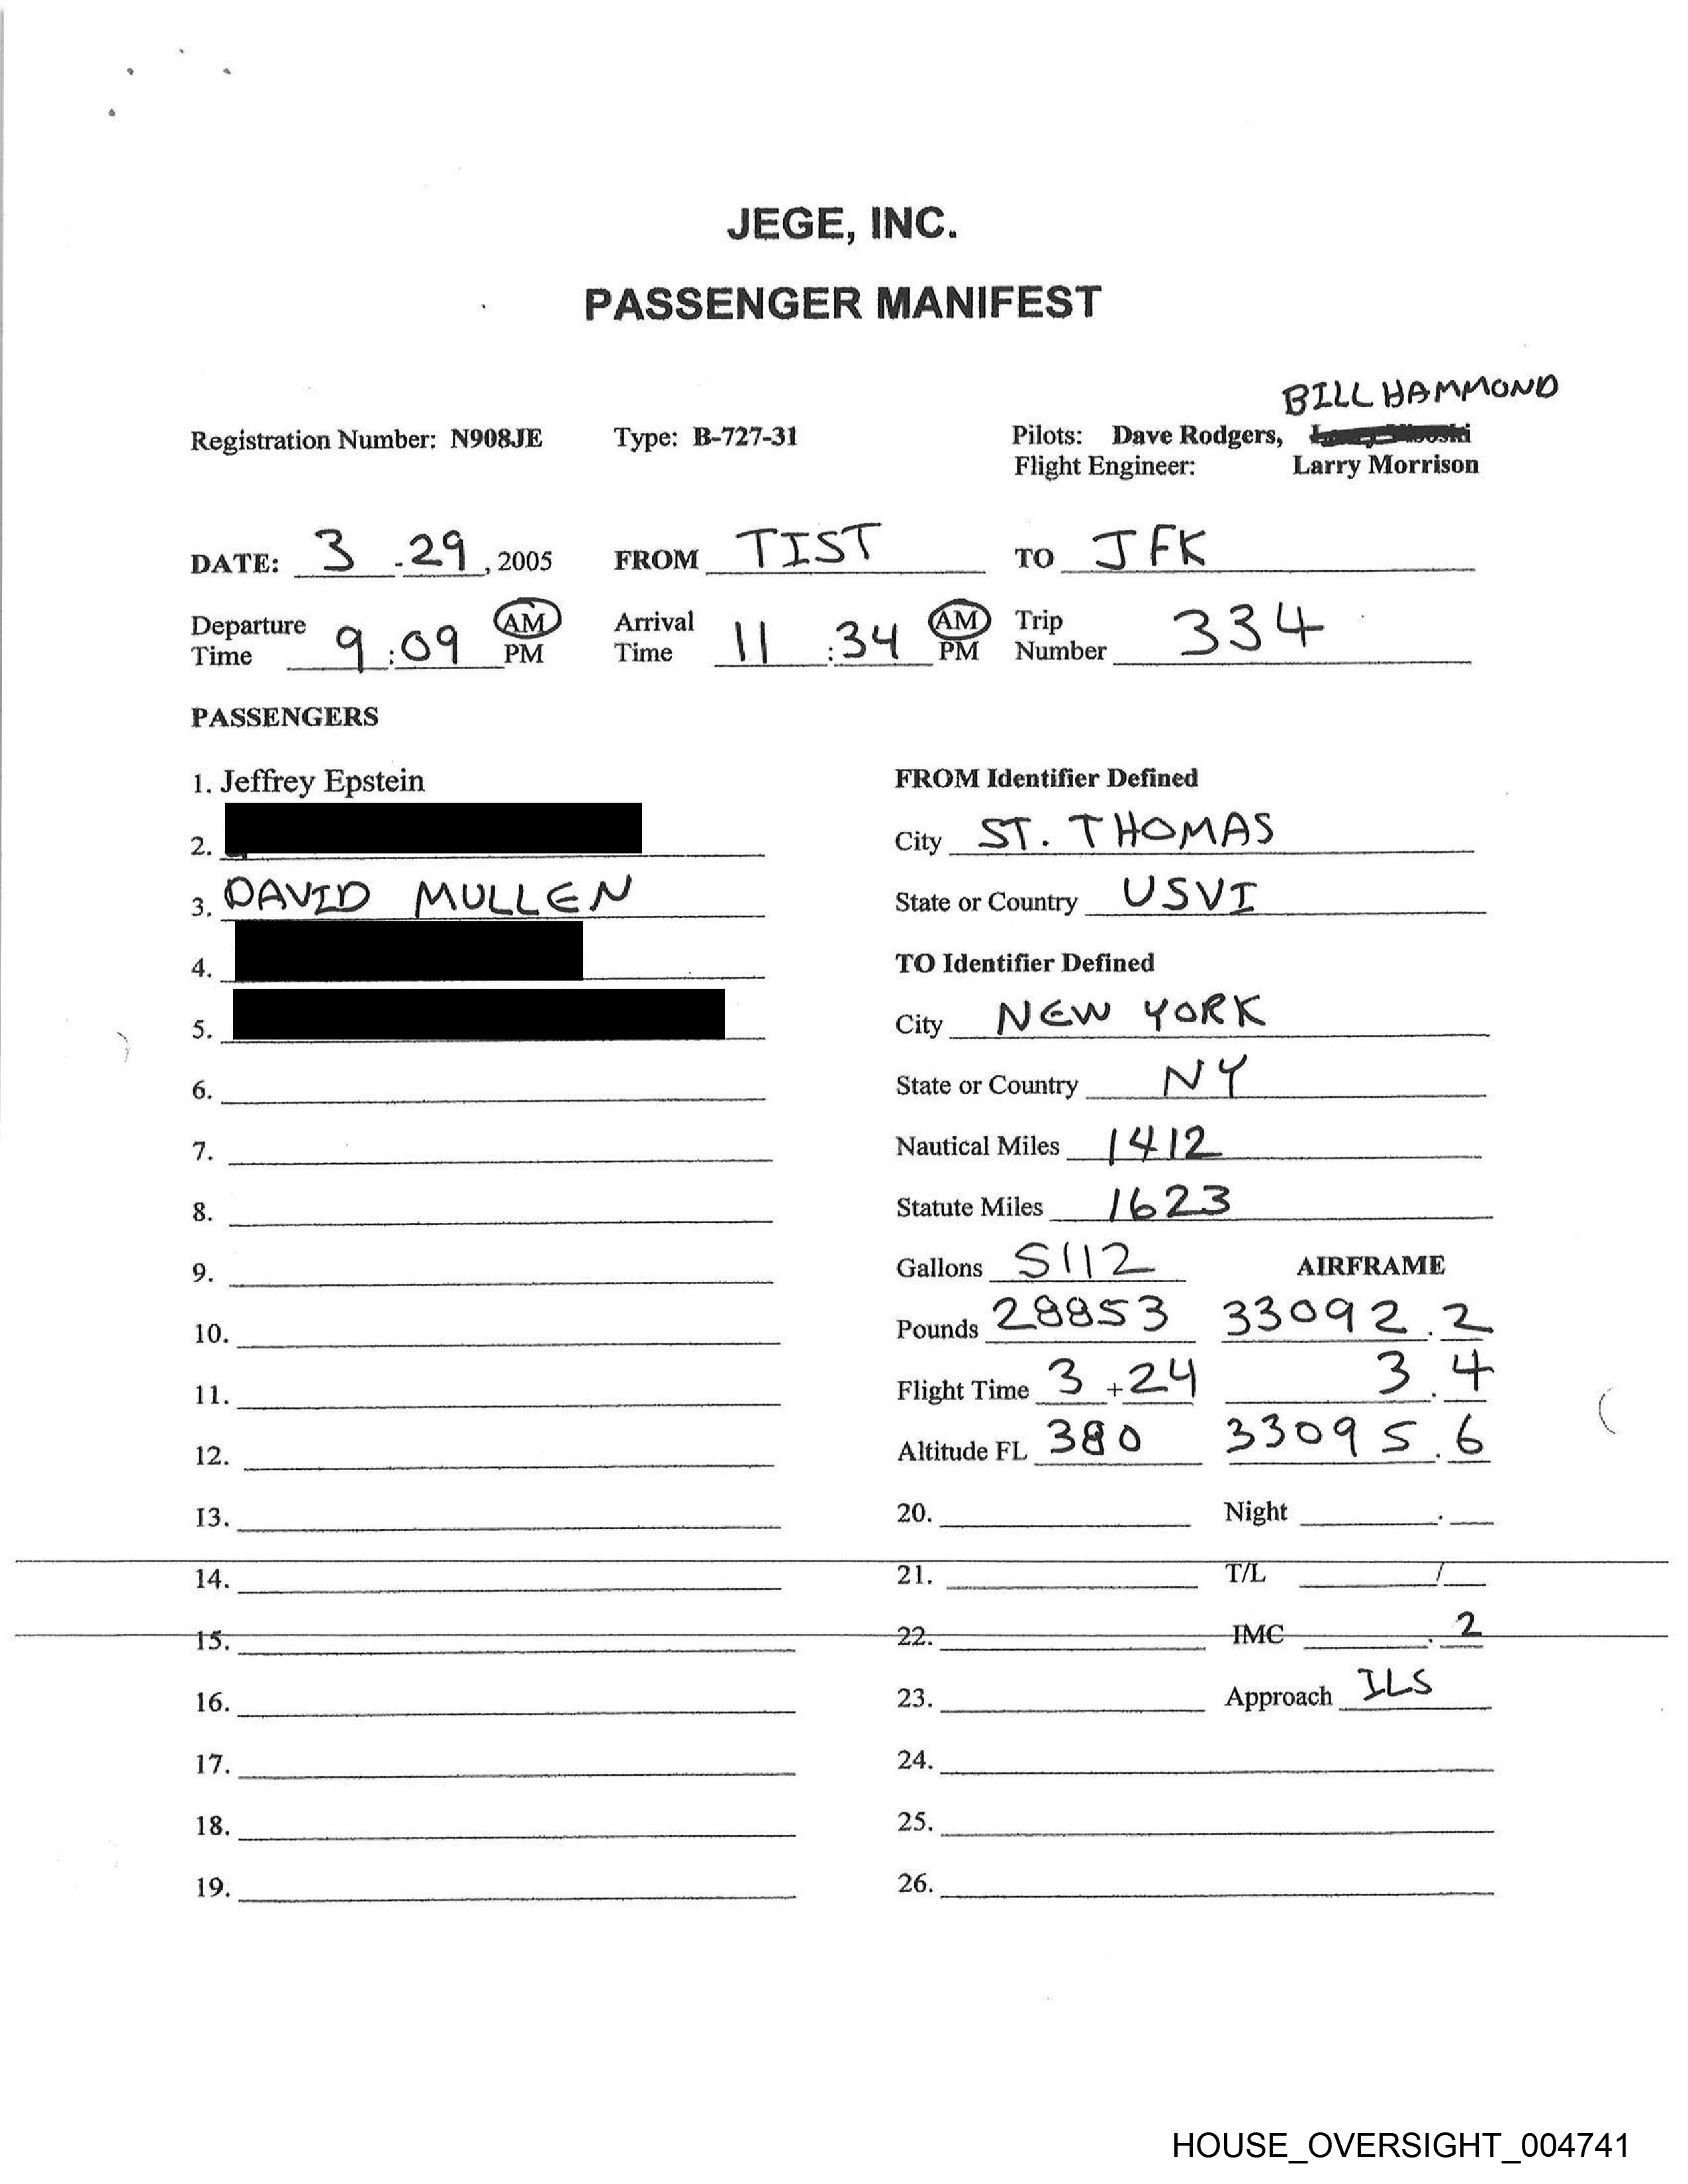 JEGE, INC.
PASSENGER MANIFEST
BILL HAMMOND
Registration Number: N908JE Type: B-727-31 Pilots: Dave Rodgers,
Flight Engineer: Larry Morrison
DATE: 3 - 29, 2005 FROM TIST TO JFK
Departure Time 9:09 AM PM Arrival Time 11:34 AM PM Trip Number 334
PASSENGERS
1. Jeffrey Epstein FROM Identifier Defined
2. City ST. THOMAS
3. DAVID MULLEN State or Country USVI
4. TO Identifier Defined
5. City NEW YORK
6. State or Country NY
7. Nautical Miles 1412
8. Statute Miles 1623
9. Gallons 5112 AIRFRAME
10. Pounds 28853 33092.2
11. Flight Time 3+24 3.4
12. Altitude FL 380 33095.6
13. 20. Night .
14. 21. T/L /
15. 22. IMC .2
16. 23. Approach ILS
17. 24.
18. 25.
19. 26.
HOUSE_OVERSIGHT_004741